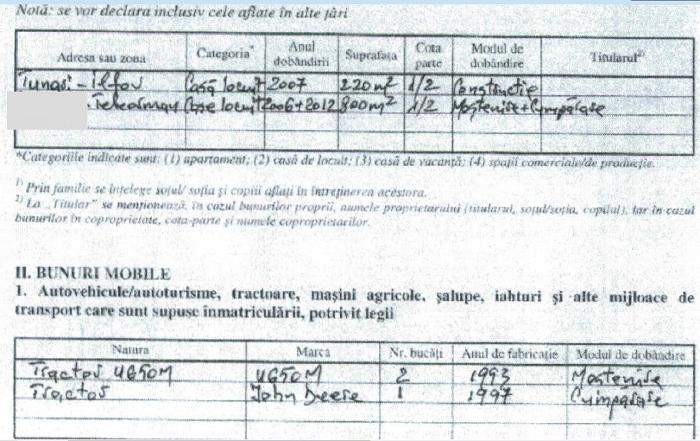 Notă: se vor declara inclusiv cele aflate în alte țări
Adresa sau zona Categoria* Anul dobândirii Suprafața Cota parte Modul de dobândire Titularul2)
Tunari - Ilfov Casă locuit 2007 220 m2 1/2 Construcție
Teleorman Case locuit 2006+2012 800m2 1/2 Moștenire+Cumpărare
*Categoriile indicate sunt: (1) apartament; (2) casă de locuit; (3) casă de vacanță; (4) spații comerciale/de producție.
1) Prin familie se înțelege soțul/ soția și copiii aflați în întreținerea acestora.
2) La „Titular” se menționează, în cazul bunurilor proprii, numele proprietarului (titularul, soțul/soția, copilul), iar în cazul
bunurilor în coproprietate, cota-parte și numele coproprietarilor.
II. BUNURI MOBILE
1. Autovehicule/autoturisme, tractoare, mașini agricole, șalupe, iahturi și alte mijloace de
transport care sunt supuse înmatriculării, potrivit legii
Natura Marca Nr. bucăți Anul de fabricație Modul de dobândire
Tractor U650M U650M 2 1993 Moștenire
Tractor John Deere 1 1997 Cumpărare